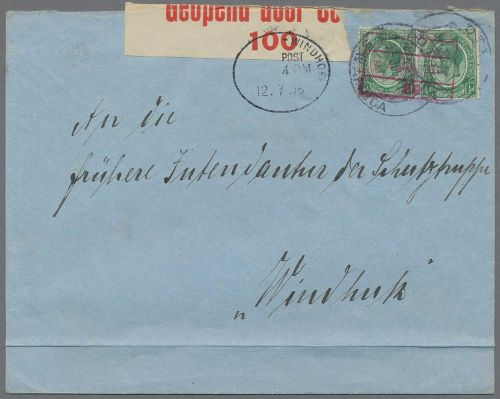 Geopend door
100
WINDHOEK
POST
4 PM
12. 7. 16
An die
frühere Intendantur der Schutztruppe
„Windhuk“